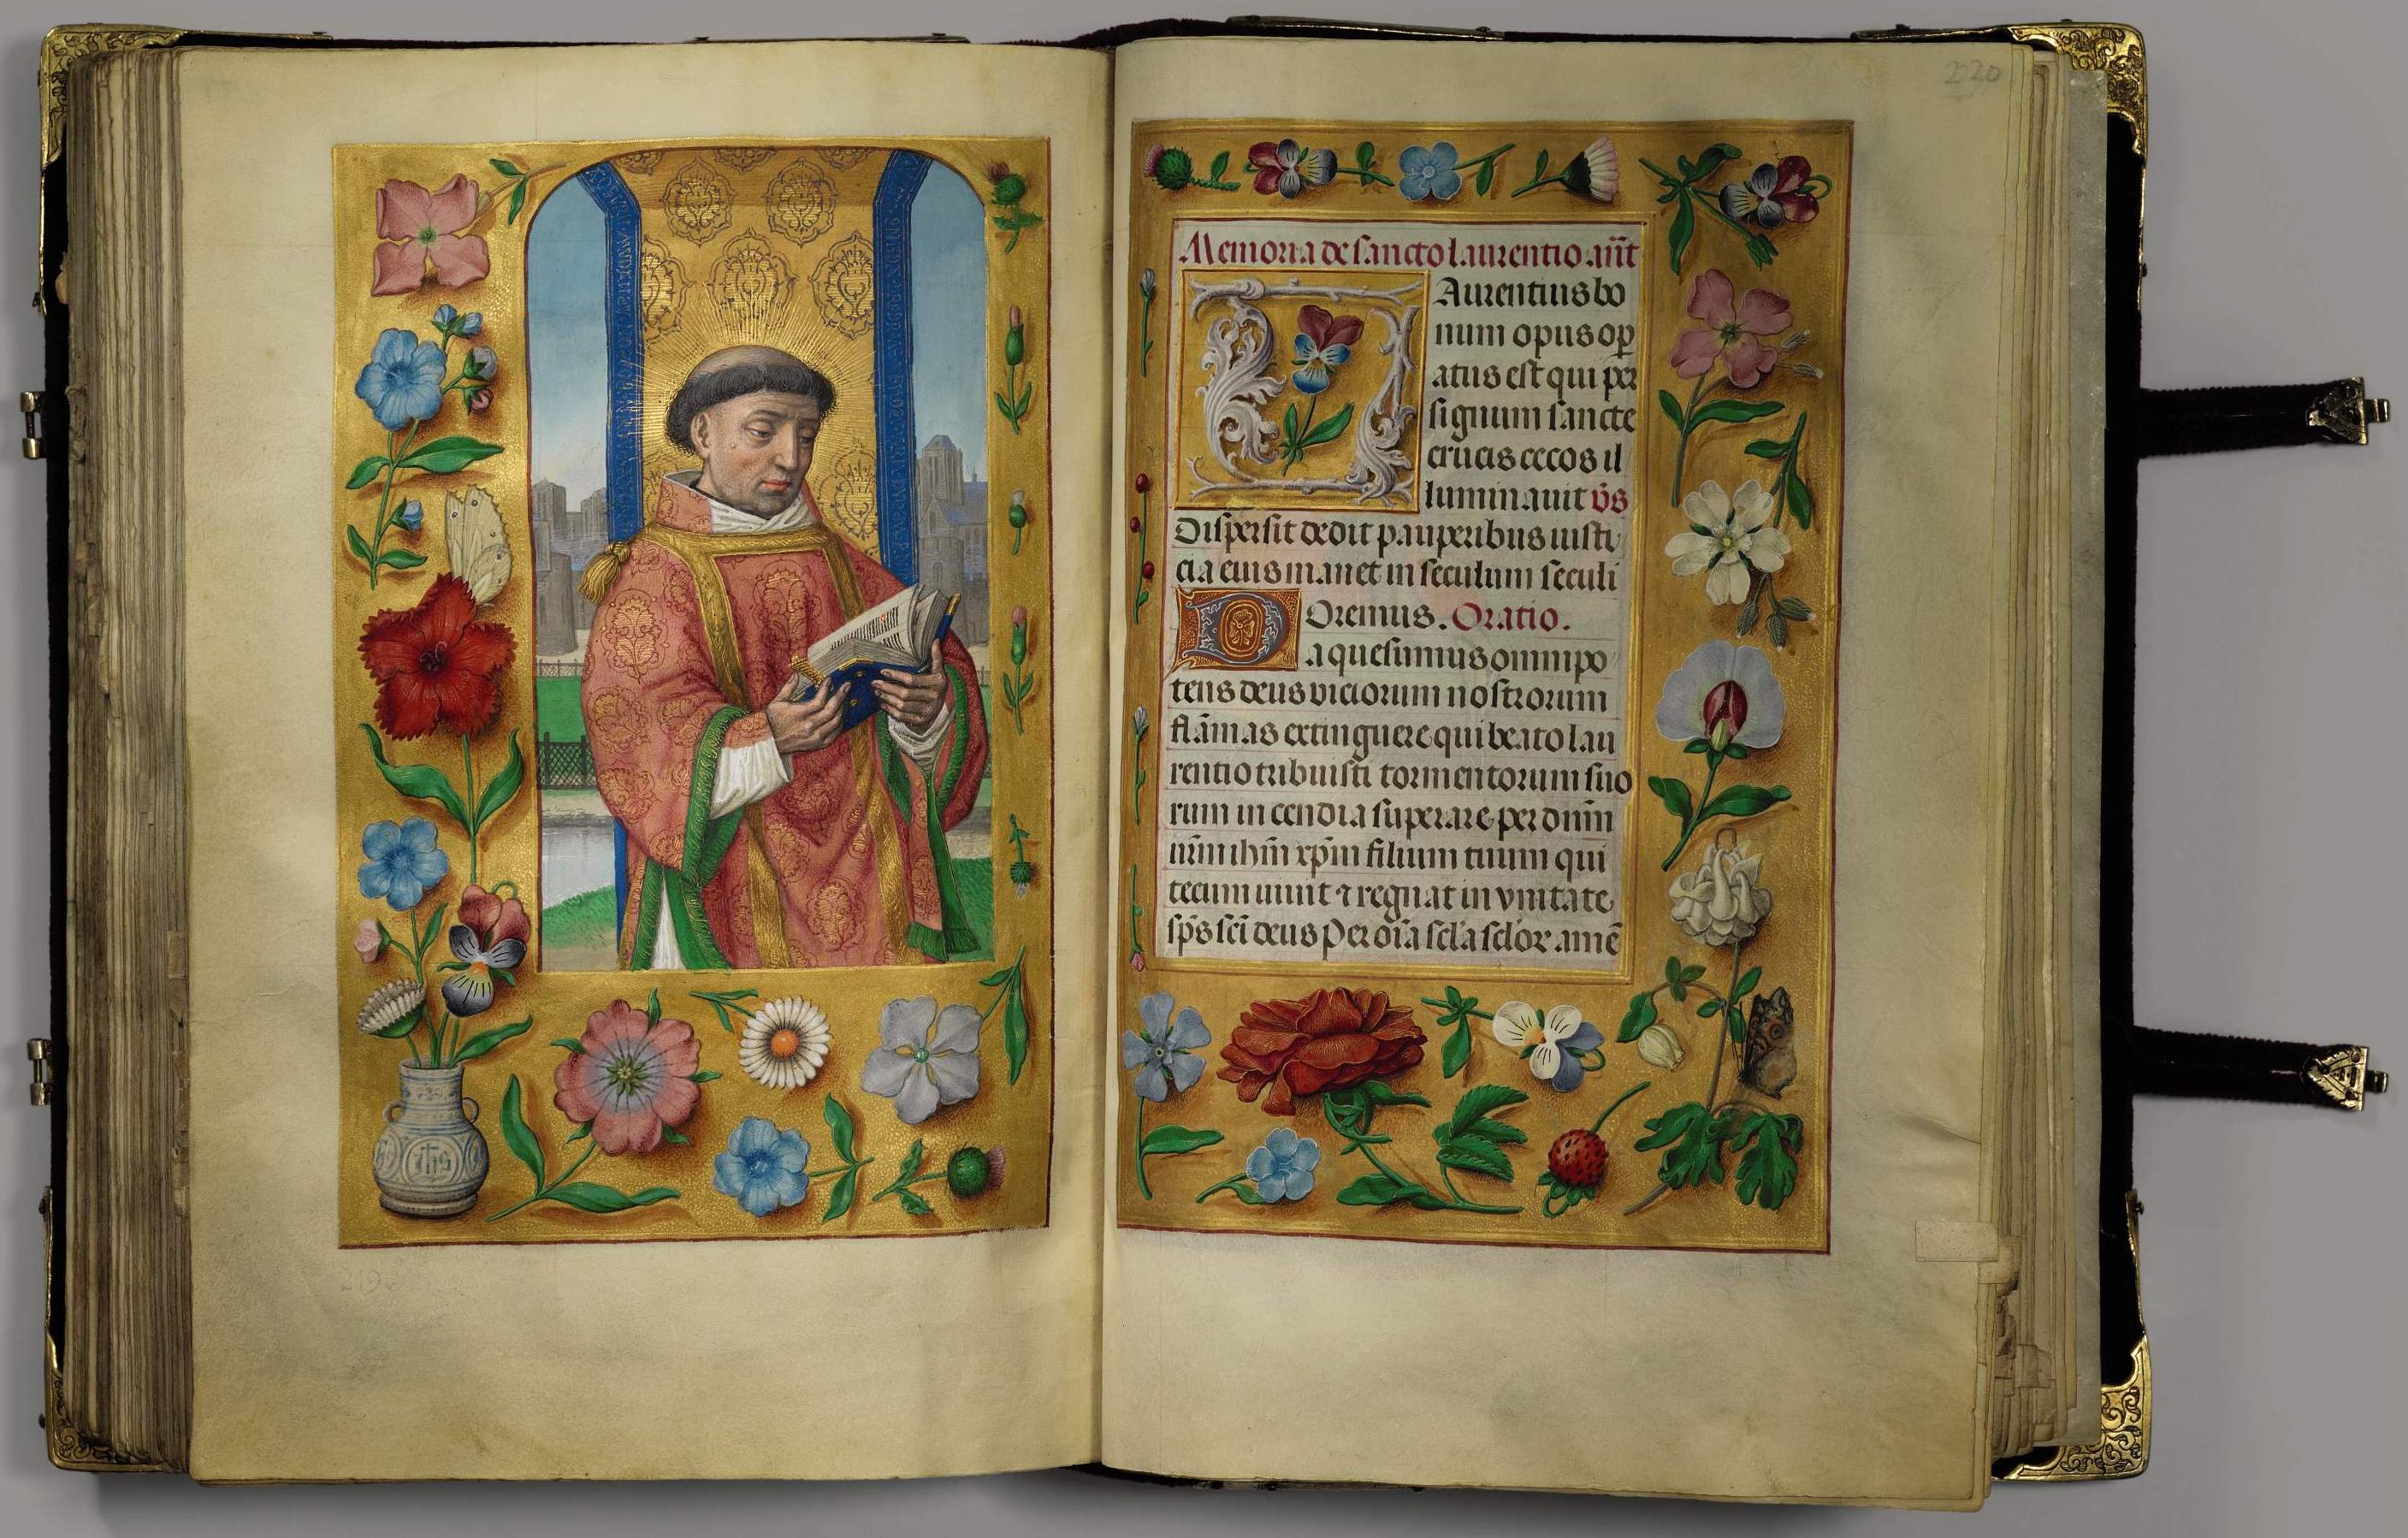 219
220
Memoria de sancto laurentio. añt
Aurentius bo
num opus op̄
atus est qui per
signum sancte
crucis cecos il
luminauit v̄s
Dispersit dedit pauperibus iusti
cia eius manet in seculum seculi
Oremus. Oratio.
Da quesumus omnipo
tens deus viciorum nostrorum
flāmas extinguere qui beato lau
rentio tribuisti tormentorum suo
rum incendia superare per dnm̄
nr̄m ihm̄ xp̄m filium tuum qui
tecum uiuit ⁊ regnat in vnitate
sp̄s sc̄i deus Per oīa sc̄la sc̄lor amē
ihs